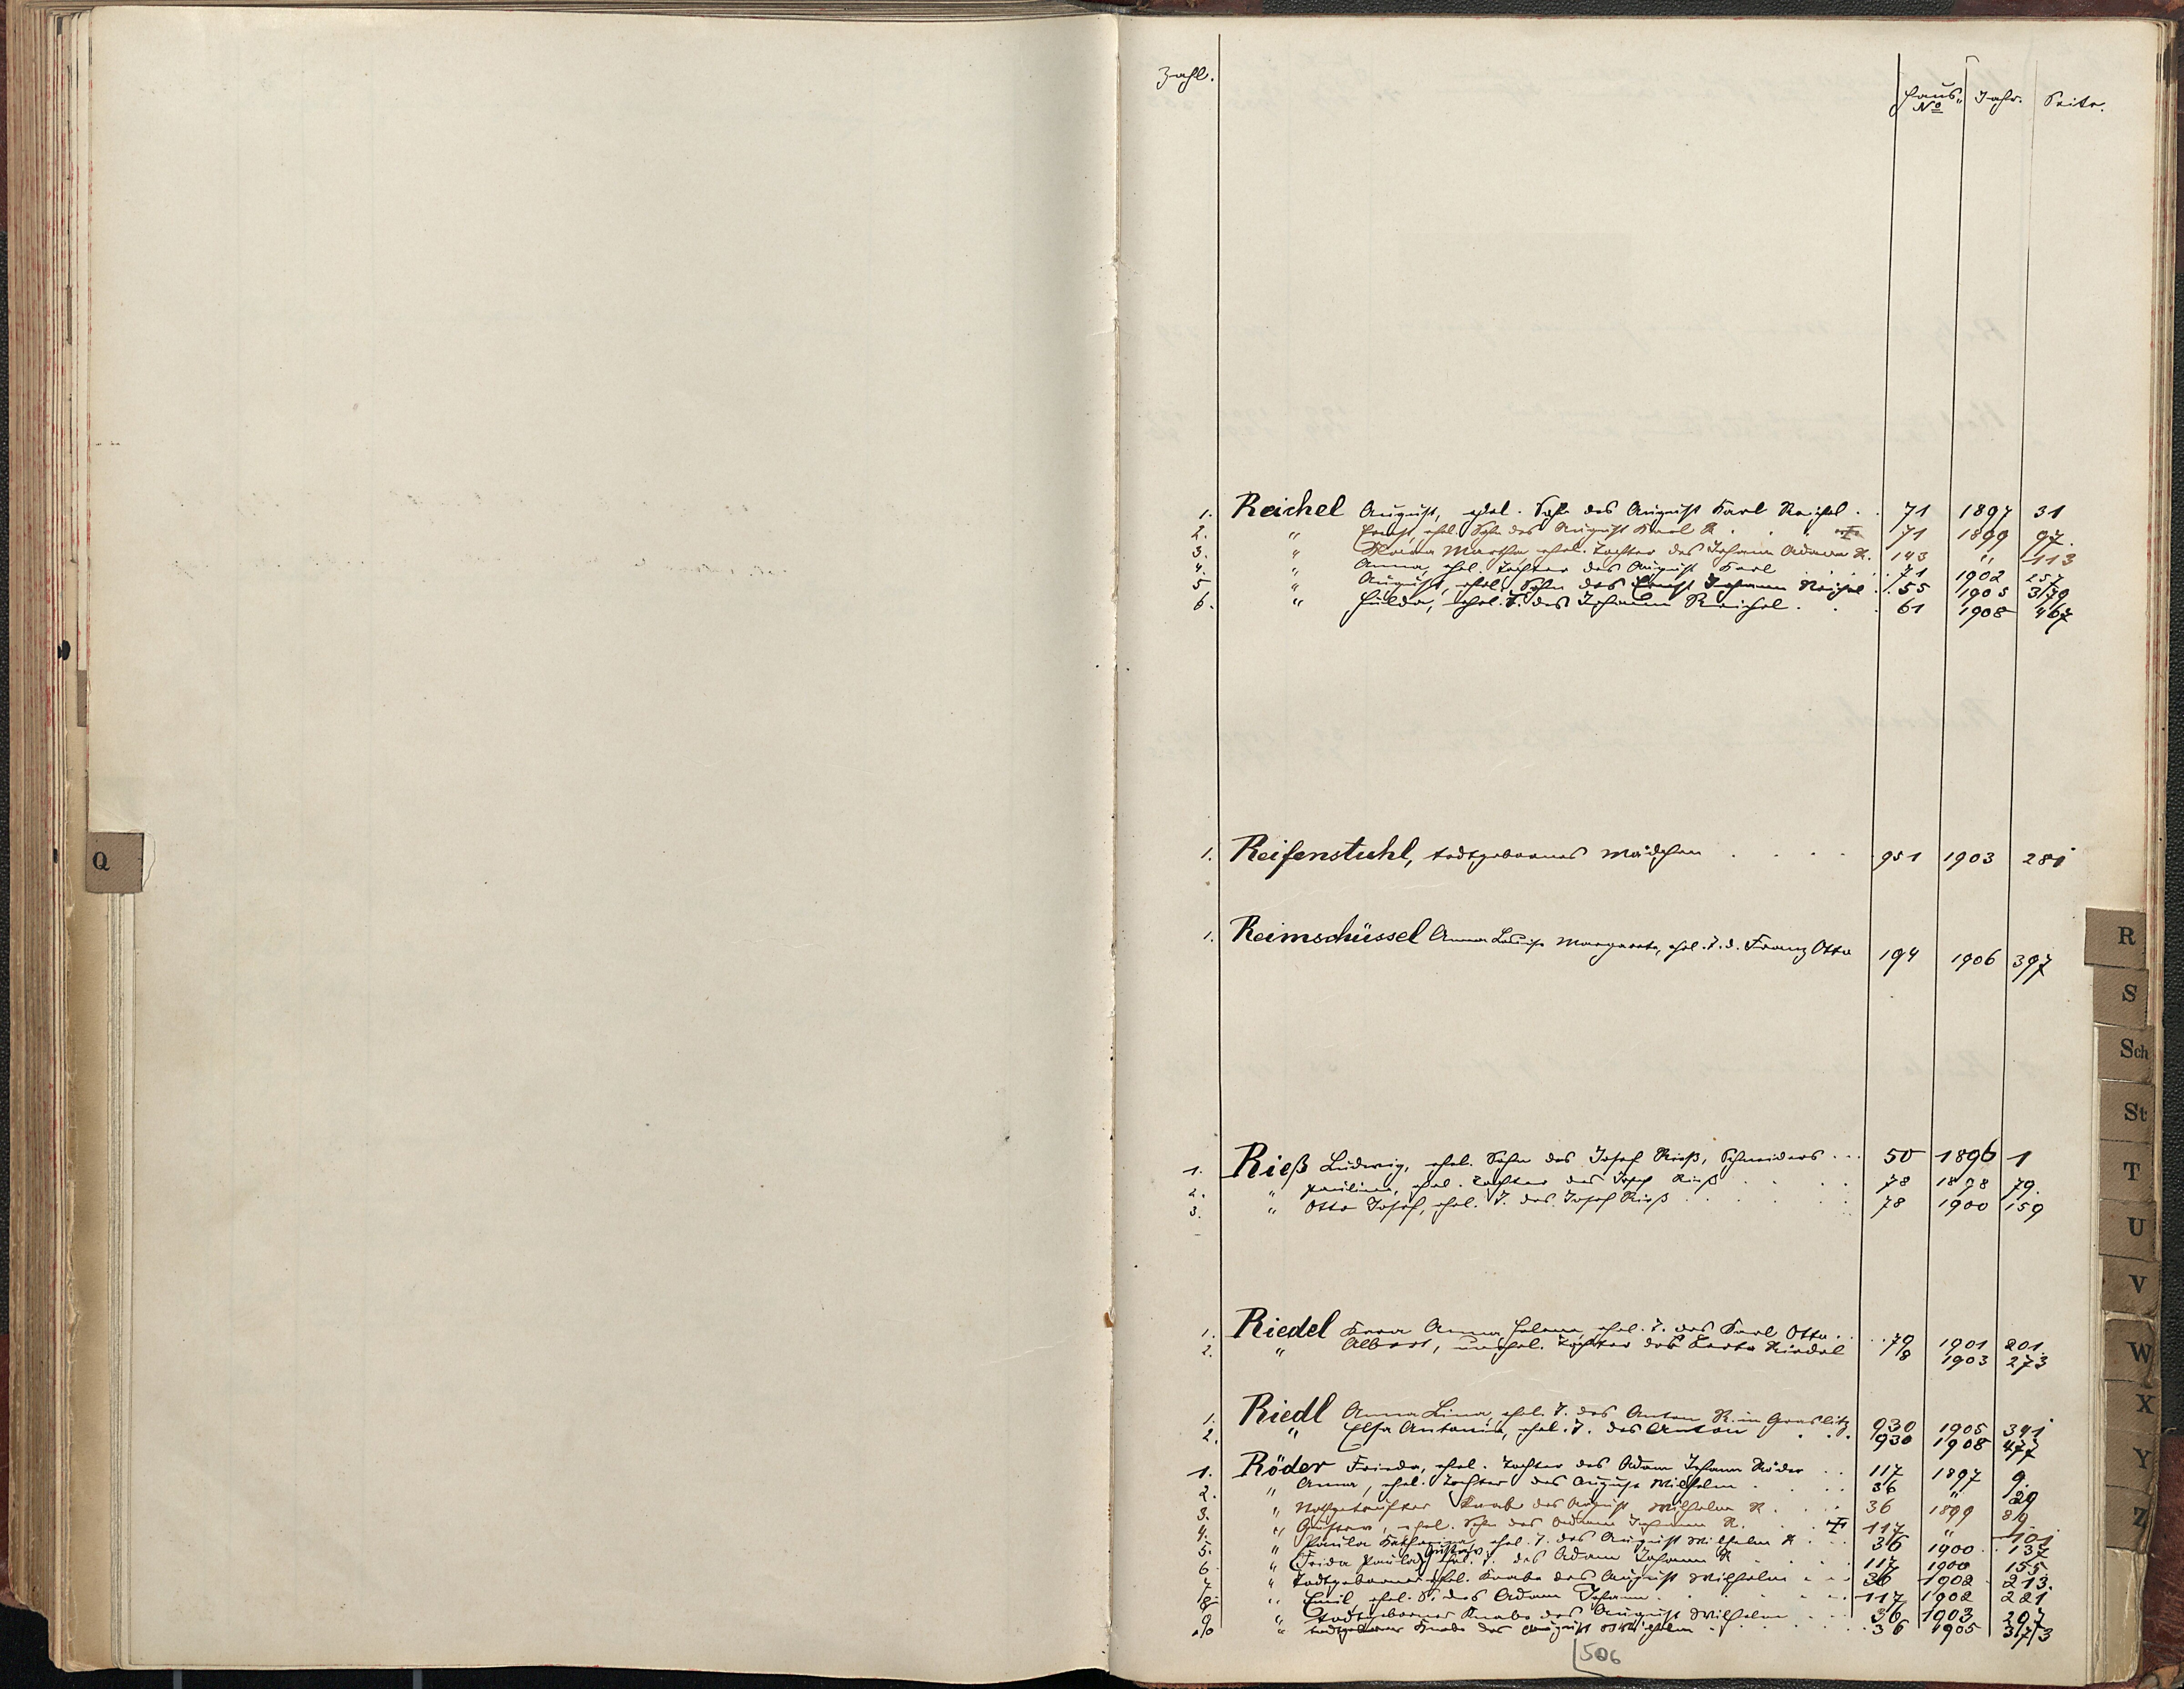 Zahl.
Haus-
No
Jahr.
Seite.
1. Reichel August, ehel. Sohn des August Karl Reichel . . 71 1897 31
2. " Ernst, ehel. Sohn des August Karl R. . . . 71 1899 97.
3. " Martha ehel. Tochter des Johann Adam R. 143 " 113
4. " Anna, ehel. Tochter des August Karl . . 71 1902 257
5 " August, ehel. Sohn des Ernst Johann Reichel . . 55 1905 379
6. " Hilda, ehel. T. des Johann Reichel . . . 61 1908 467
1. Reifenstuhl, todtgebornes Mädchen . . . . . 951 1903 281
1. Reimschüssel Anna Margareta, ehel. T. d. Franz Otto 194 1906 397
1. Rieß Ludwig, ehel. Sohn des Josef Rieß, Schneiders . . . 50 1896 1
2. " Paulina, ehel. Tochter des Josef Rieß . . . . 78 1898 79.
3. " Otto Josef, ehel. des Josef Rieß . . . . . 78 1900 159
1. Riedel Anna Helena, ehel. T. des Karl Otto . . . 79 1901 201.
2. " Albert, unehel. Tochter des Riedel 8 1903 273
1. Riedl Anna Lina, ehel. T. des Anton R. in Graslitz 930 1905 341
2. " Elsa Antonia, ehel. T. des Anton . . . 930 1908 477
1. Röder Frieda, ehel. Tochter des Adam Johann Röder . . 117 1897 9.
2. " Anna, ehel. Tochter des August Wilhelm . . . . 36 " 29
3. " Nothgetaufter Knabe des August Wilhelm R. . . . 36 1899 89.
4. " Gustav, ehel. Sohn des Adam Johann R. . . . 117 " 101
5. " Paula Katharina ehel. T. des August Wilhelm R . . . 36 1900 137
6. " Frida Paula, Gustav ehel. T. des Adam Johann R . . . 117 1900 155.
7 " Todtgeborner ehel. Knabe des August Wilhelm . . . 36 1902 213.
8. " Emil, ehel. S. des Adam Johann . . . . . 117 1902 221
9. " Todtgeborner Knabe des August Wilhelm . . . 36 1903 297
10 " todtgeborner Knabe des August Wilhelm . . . . . 36 1905 373
506
Q
R
S
Sch
St
T
U
V
W
X
Y
Z